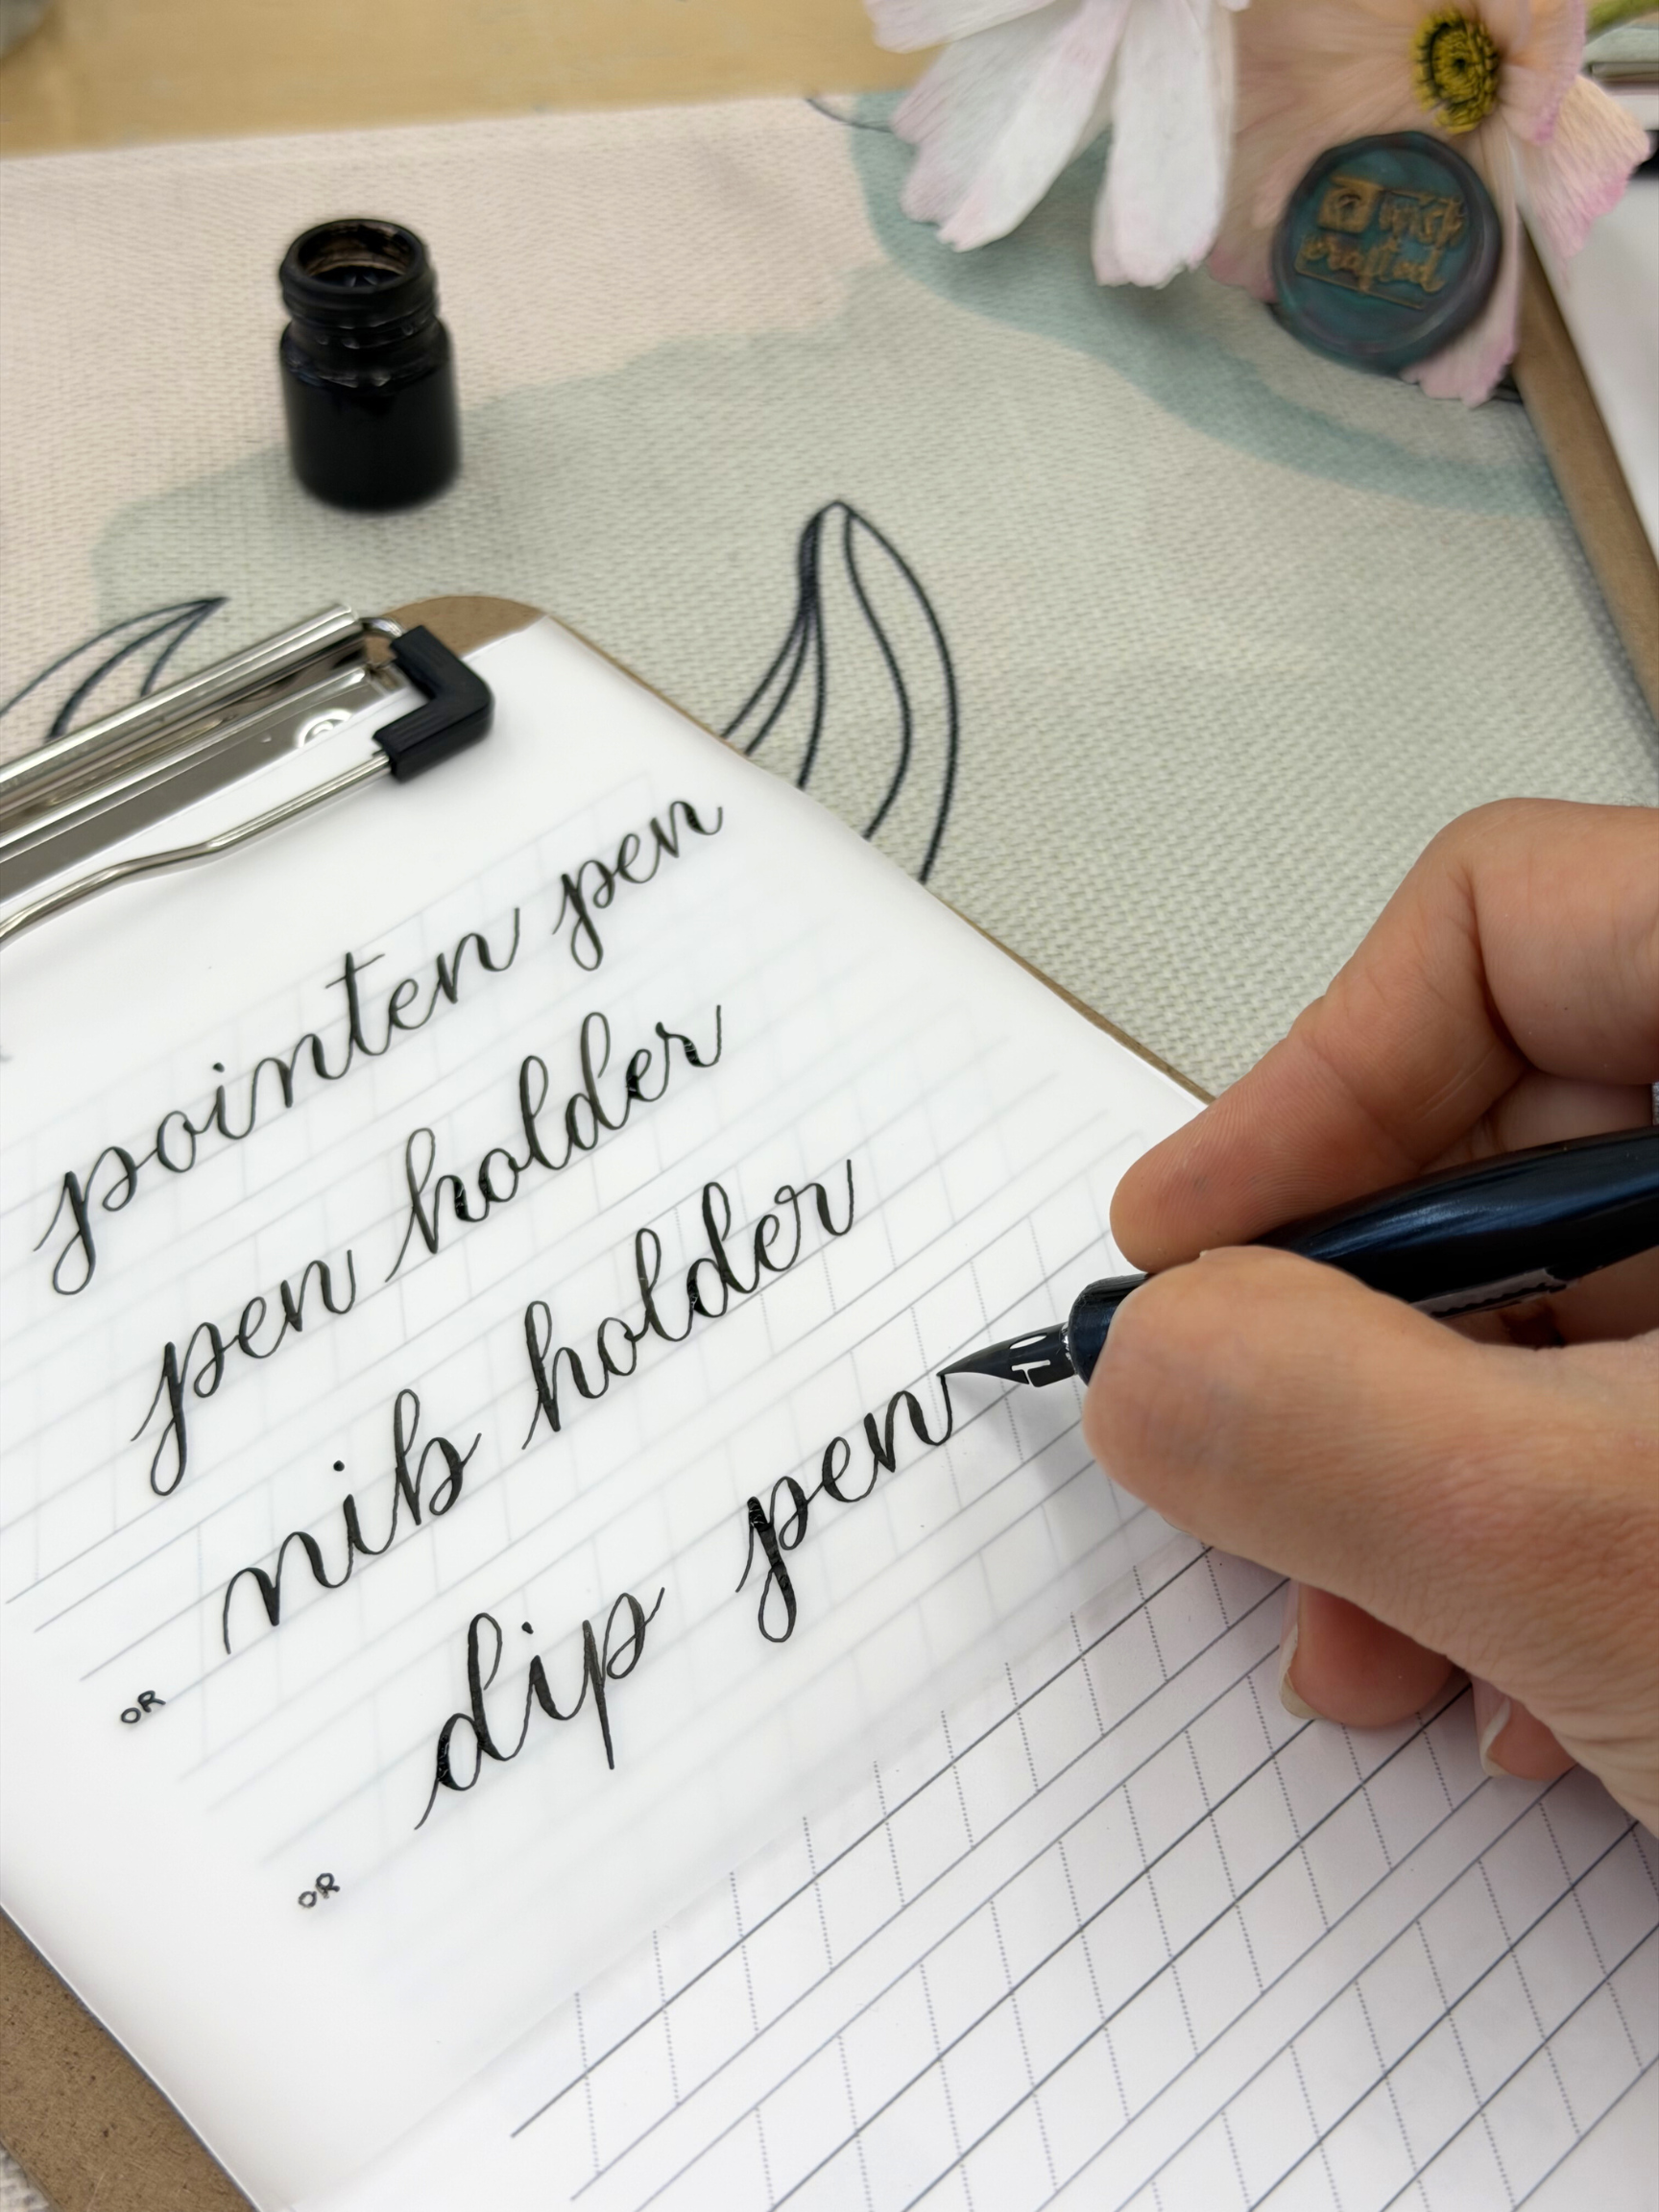 mist
crafted
pointen pen
pen holder
OR
nib holder
OR
dip pen